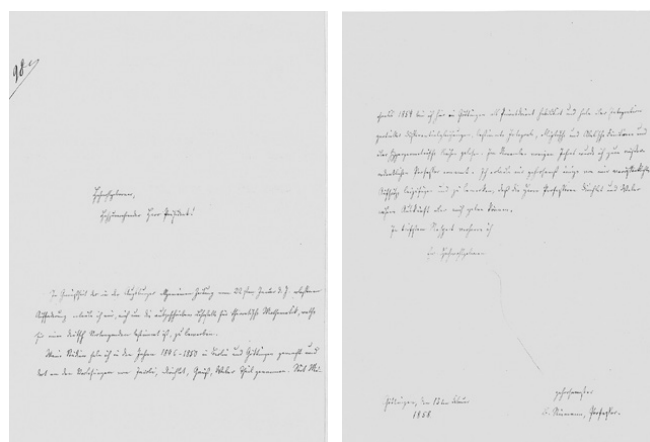 Herr Präsident!
der in der Augsburger Allgemeinen Zeitung vom Januar d. J.
erlaube ich mir, mich um die für theoretische Mathematik, welche
für einen deutsch Vortragenden bestimmt ist, zu bewerben.
Meine Studien habe ich in den Jahren 1846-1850 in Berlin und Göttingen gemacht und
dort an den Vorlesungen von Jacobi, Dirichlet, Gauß, Weber Theil genommen. Seit Mi-
chaelis 1854 bin ich hier in Göttingen als Privatdocent habilitirt und habe über Integration
partieller Differentialgleichungen, bestimmte Integrale, elliptische und Abelsche Functionen und
die hypergeometrische Reihe gelesen. Im November vorigen Jahres wurde ich zum außer-
ordentlichen Professor ernannt. Ich erlaube mir gehorsamst einige von mir veröffentlichte
Aufsätze beizufügen und zu bemerken, daß die Herren Professoren Dirichlet und Weber
nähere Auskunft über mich geben können.
In tiefstem Respect verharre ich
gehorsamster
Göttingen, den Februar
1858
B. Riemann, Professor.